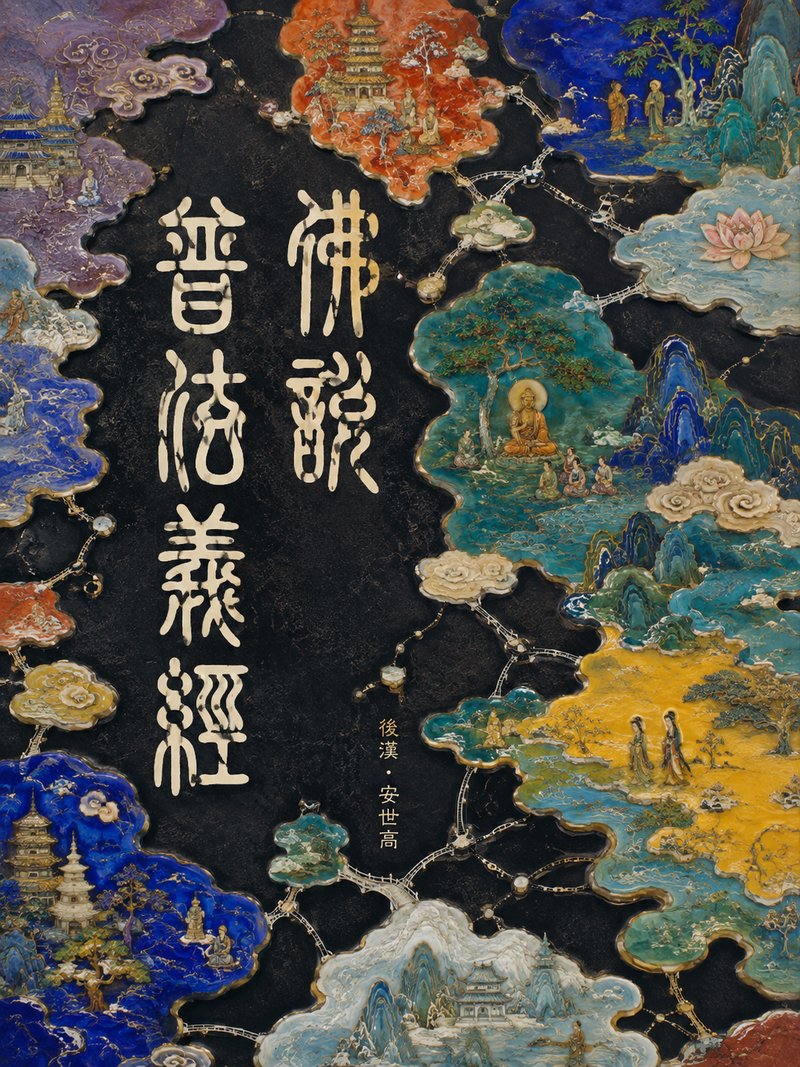 佛說
普法義經
後漢·安世高